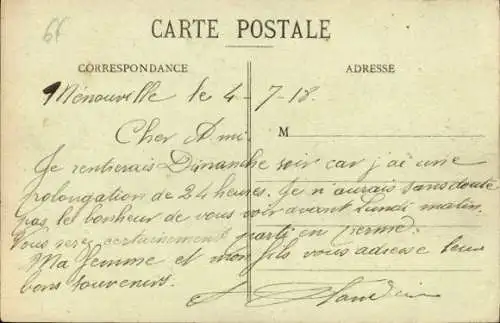 66
CARTE POSTALE
CORRESPONDANCE
ADRESSE
Ménouville le 4-7-18.
Cher Ami.
M
Je rentierais Dimanche soir car j'ai une
prolongation de 24 heures. Je n'aurais sans doute
pas le bonheur de vous voir avant Lundi matin.
Vous serez certainement parti en ferme.
Ma femme et mon fils vous adresse leurs
bons souvenirs.